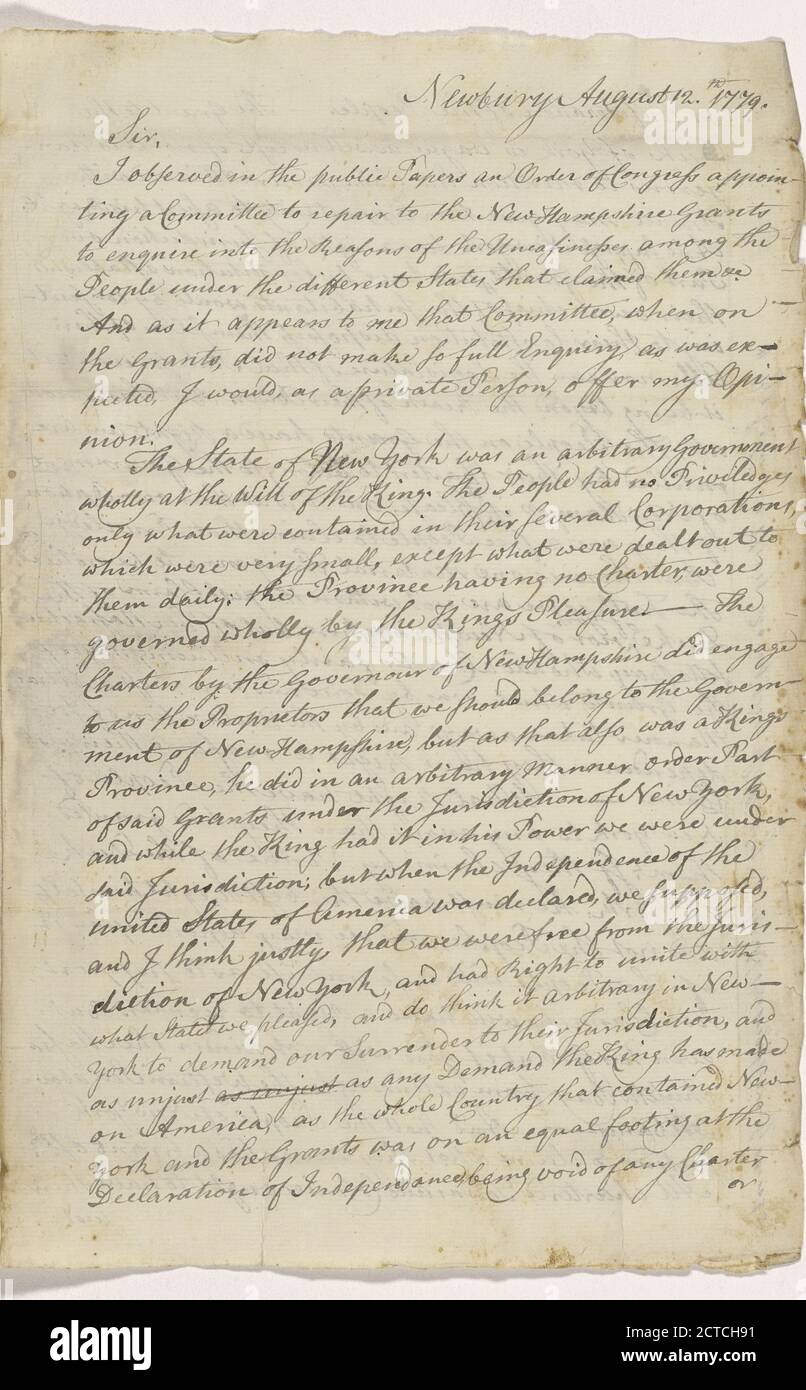 Newbury August 12.th 1779.
Sir,
I observed in the public Papers an Order of Congress appoin-
ting a Committee to repair to the New Hampshire Grants
to enquire into the Reasons of the Uneasinesses among the
People under the different States that claimed them &c.
And as it appears to me that Committee, when on
the Grants, did not make so full Enquiry, as was ex-
pected, I would, as a private Person, offer my Opi-
nion.
The State of New York was an arbitrary Government
wholly at the Will of the King. The People had no Priviledges
only what were contained in their several Corporations,
which were very small, except what were dealt out to
them daily: the Province having no Charter, were
governed wholly by the Kings Pleasure. — The
Charters by the Governour of New Hampshire did engage
to us the Proprietors that we should belong to the Govern-
ment of New Hampshire, but as that also was a Kings
Province, he did in an arbitrary Manner order Part
of said Grants under the Jurisdiction of New York,
and while the King had it in his Power we were under
said Jurisdiction; but when the Independence of the
united States of America was declared, we supposed,
and I think justly, that we were free from the Juris-
diction of New York, and had Right to unite with
what State we pleased, and do think it arbitrary in New-
York to demand our Surrender to their Jurisdiction, and
as unjust as unjust as any Demand the King has made
on America, as the whole Country that contained New-
York and the Grants was on an equal footing at the
Declaration of Independance, being void of any Charter
or
alamy
alamy
alamy
alamy
alamy
Image ID: 2CTCH91
www.alamy.com